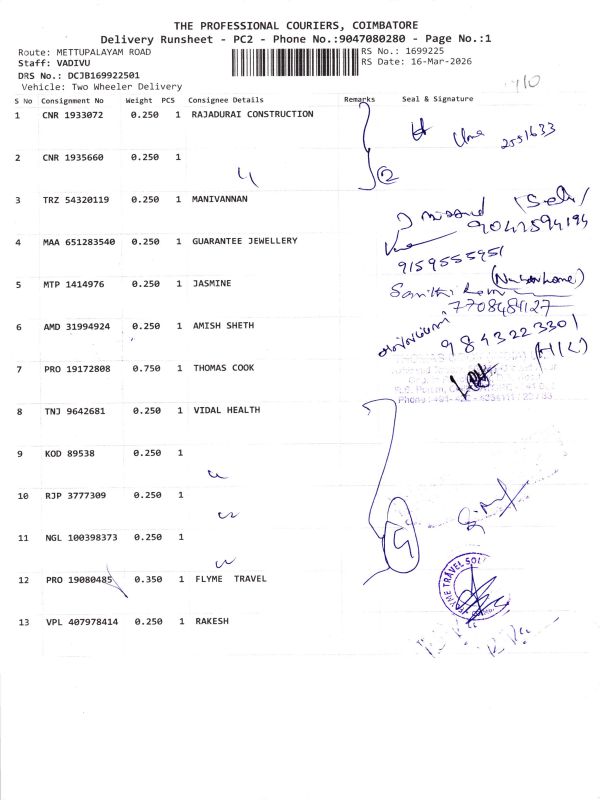 THE PROFESSIONAL COURIERS, COIMBATORE
Delivery Runsheet - PC2 - Phone No.:9047080280 - Page No.:1
Route: METTUPALAYAM ROAD
RS No.: 1699225
Staff: VADIVU
RS Date: 16-Mar-2026
DRS No.: DCJB169922501
Vehicle: Two Wheeler Delivery
S No Consignment No Weight PCS Consignee Details Remarks Seal & Signature
1 CNR 1933072 0.250 1 RAJADURAI CONSTRUCTION
2551633
2 CNR 1935660 0.250 1
2
3 TRZ 54320119 0.250 1 MANIVANNAN
9042594194
4 MAA 651283540 0.250 1 GUARANTEE JEWELLERY
9159555951
5 MTP 1414976 0.250 1 JASMINE
7708484127
6 AMD 31994924 0.250 1 AMISH SHETH
9843223301
(H/L)
7 PRO 19172808 0.750 1 THOMAS COOK
8 TNJ 9642681 0.250 1 VIDAL HEALTH
9 KOD 89538 0.250 1
10 RJP 3777309 0.250 1
11 NGL 100398373 0.250 1
12 PRO 19080485 0.350 1 FLYME TRAVEL
13 VPL 407978414 0.250 1 RAKESH